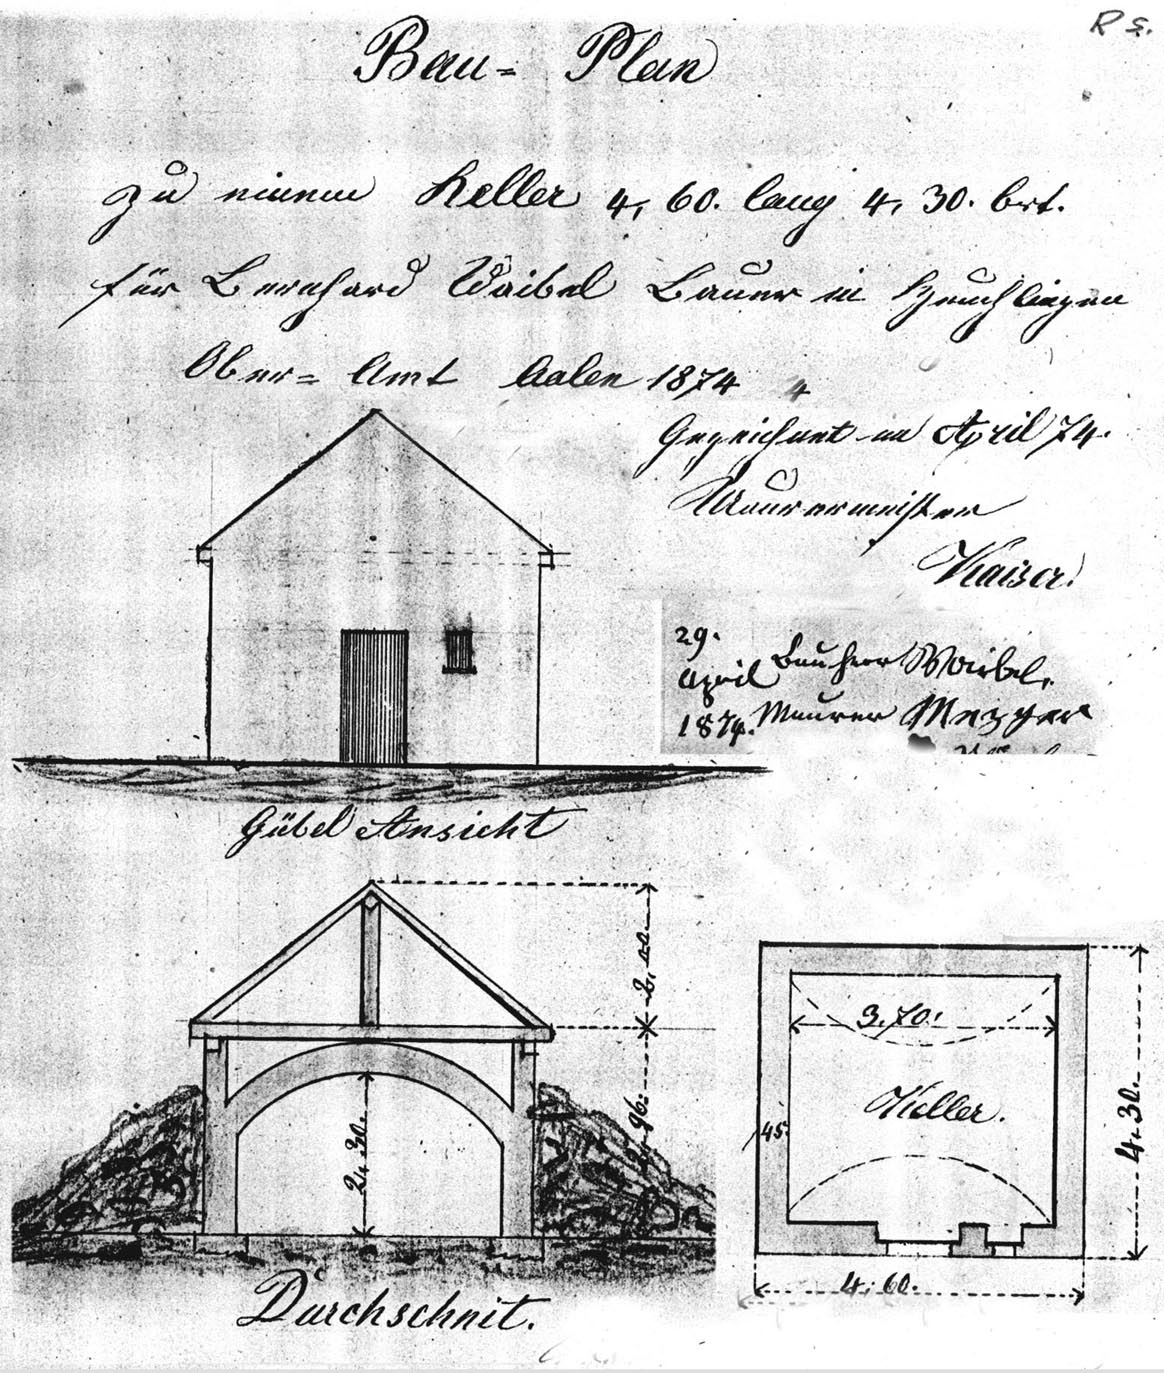 R S.
Bau= Plan
zu einem Keller 4, 60. lang 4, 30. brt.
für Bernhard Waibel Bauer in Heuchlingen
Ober= Amt Aalen 1874
Gezeichnet im April 74.
Maurermeister
Kaiser.
29.
April Bauherr Waibel.
1874. Maurer Mezger
Gübel Ansicht
2,00.
2,96.
2,30.
Durchschnit.
3,70.
Keller.
45.
4,30.
4,60.